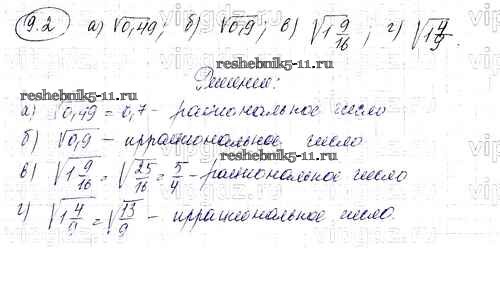 9.2 а) √0,49; б) √0,9; в) √1 9/16; г) √1 4/9.
Решение:
reshebnik5-11.ru
а) √0,49 = 0,7 - рациональное число
б) √0,9 - иррациональное число
reshebnik5-11.ru
в) √1 9/16 = √25/16 = 5/4 - рациональное число
г) √1 4/9 = √13/9 - иррациональное число.
reshebnik5-11.ru